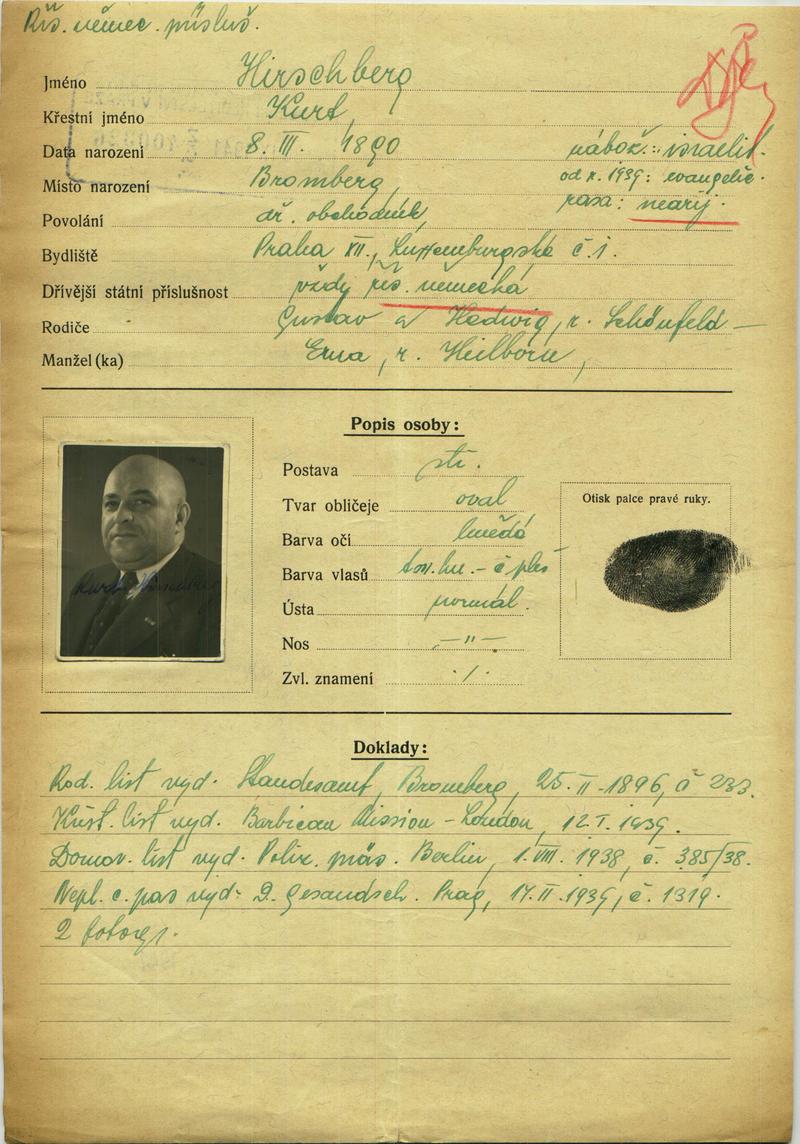 Říš. němec. přísluš.
Jméno Hirschberg
Křestní jméno Kurt,
Data narození 8. III. 1890 nábož.: israelit.
Místo narození Bromberg, od r. 1939: evangelic.
rasa: nearij.
Povolání dř. obchodník,
Bydliště Praha XII., Luxemburgská č. 1.
Dřívější státní příslušnost vždy říš. německá
Rodiče Gustav a Hedwig, r. Schönfeld —
Manžel (ka) Erna, r. Heilborn,
Popis osoby:
Postava stř.
Tvar obličeje oval
Otisk palce pravé ruky.
Barva očí hnědá
Barva vlasů tm. hn. - č pleš
Ústa normál.
Nos —"—
Zvl. znamení ·/·
Kurt Hirschberg
Doklady:
Rod. list vyd. Standesamt, Bromberg, 25. II. 1896, č 233.
Křest. list vyd. Barbican Mission - London, 12. I. 1939.
Domov. list vyd. Poliz. präs. Berlin, 1. VIII. 1938, č. 385/38.
Nepl. c. pas vyd. D. Gesandsch. Prag, 17. II. 1939, č. 1319.
2 fotogr.